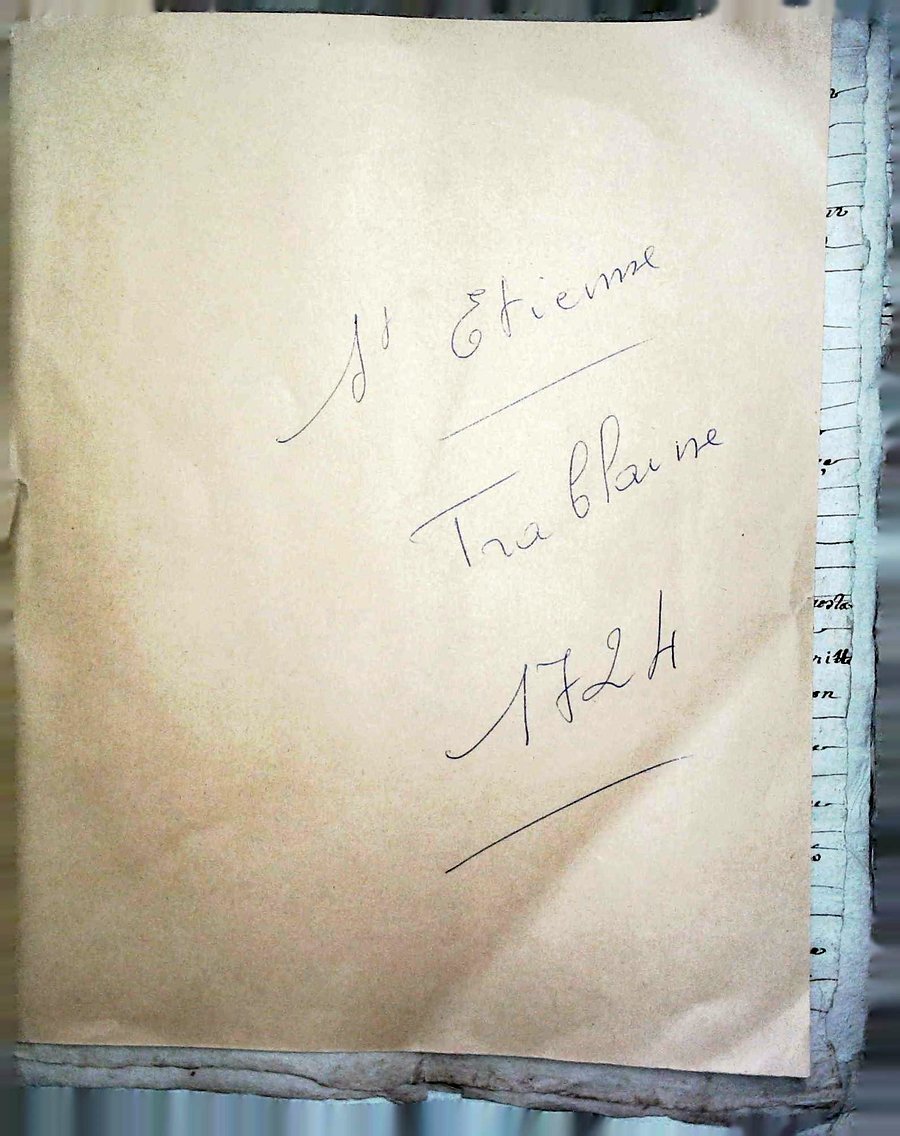 St Etienne
Trablaine
1724